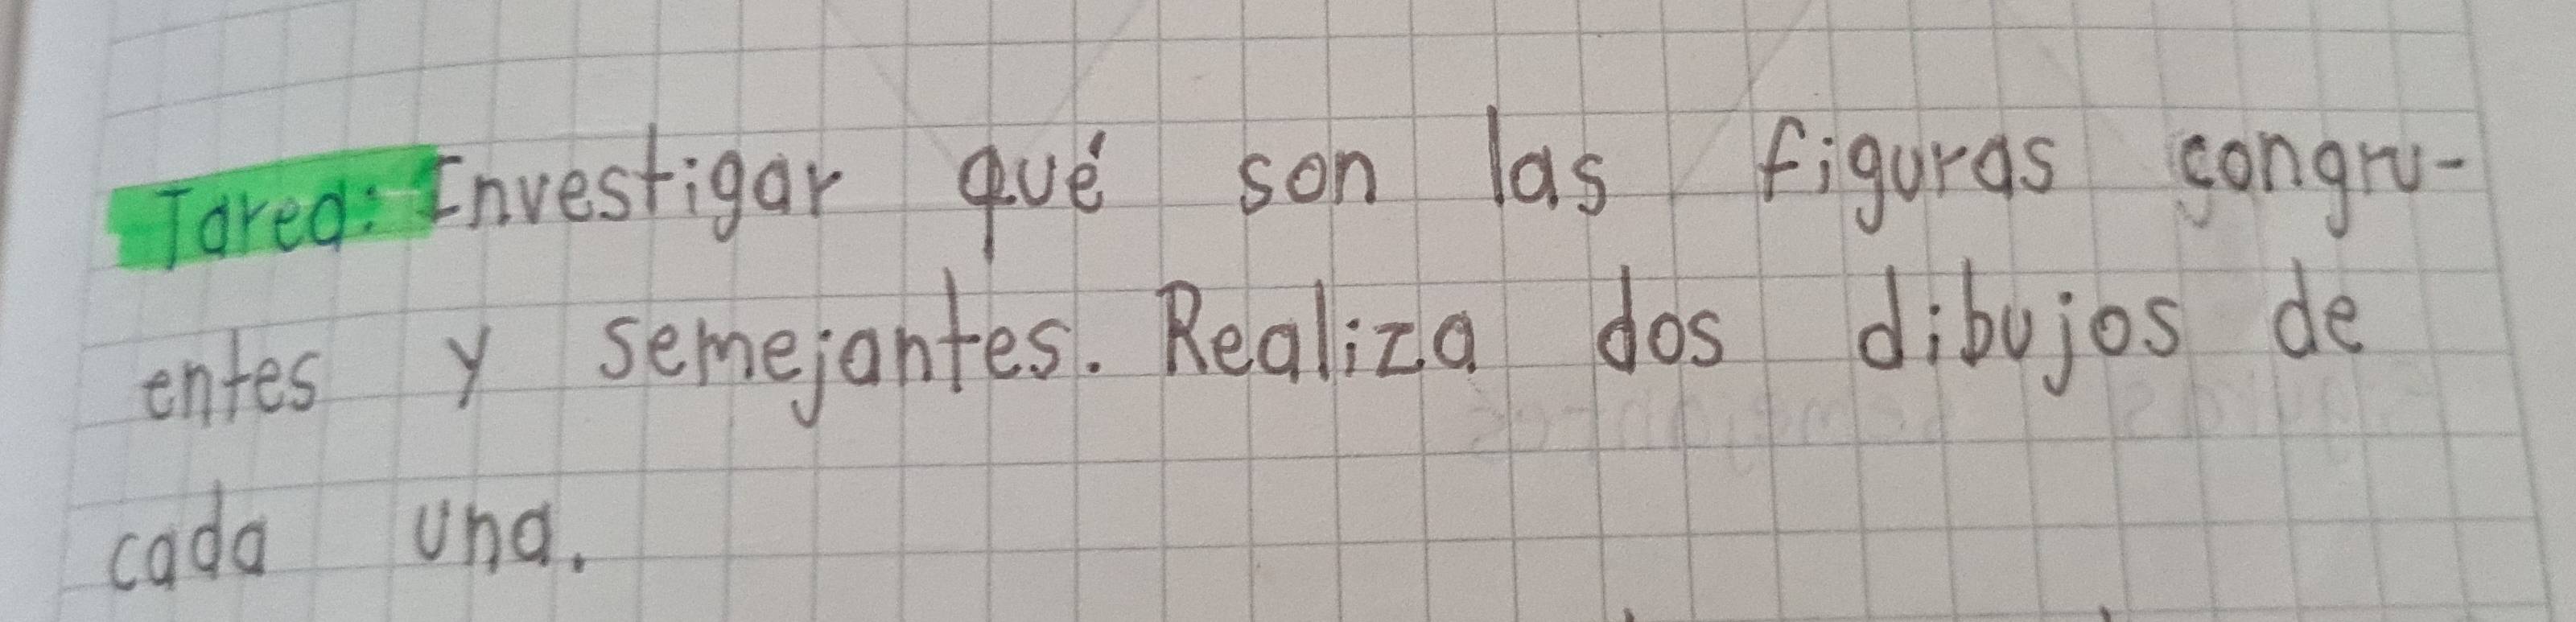 Tarea: Investigar qué son las figuras congru-
entes y semejantes. Realiza dos dibujos de
cada una.